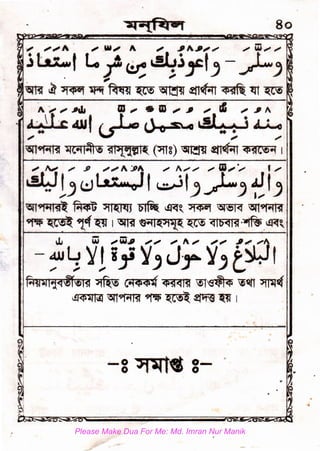 মনযিল ৪০
وسلم - واعوذبك من شر ما استعاذ
আর ঐ সকল মন্দ বিষয় হতে আশ্রয় প্রার্থনা করছি যা হতে
منه نبيك محمد صلى الله عليه
আপনার মনোনীত রাসূলুল্লাহ (সাঃ) আশ্রয় প্রার্থনা করতেন।
وسلم وانت المستعان وعليك
আপনারই নিকট সাহায্য চাচ্ছি এবং সকল অভাব আপনার
পক্ষ হতেই পূর্ণ হয়। আর গুনাহসমূহ হতে বাঁচবার শক্তি এবং
البلاغ ولا حول ولا قوة الا بالله -
নিয়মানুবর্তীতার সহিত নেককর্ম করবার তাওফীক তথা সামর্থ
একমাত্র আপনার পক্ষ হতেই প্রাপ্ত হয়।
-ঃ সমাপ্ত ঃ-
Please Make Dua For Me: Md. Imran Nur Manik